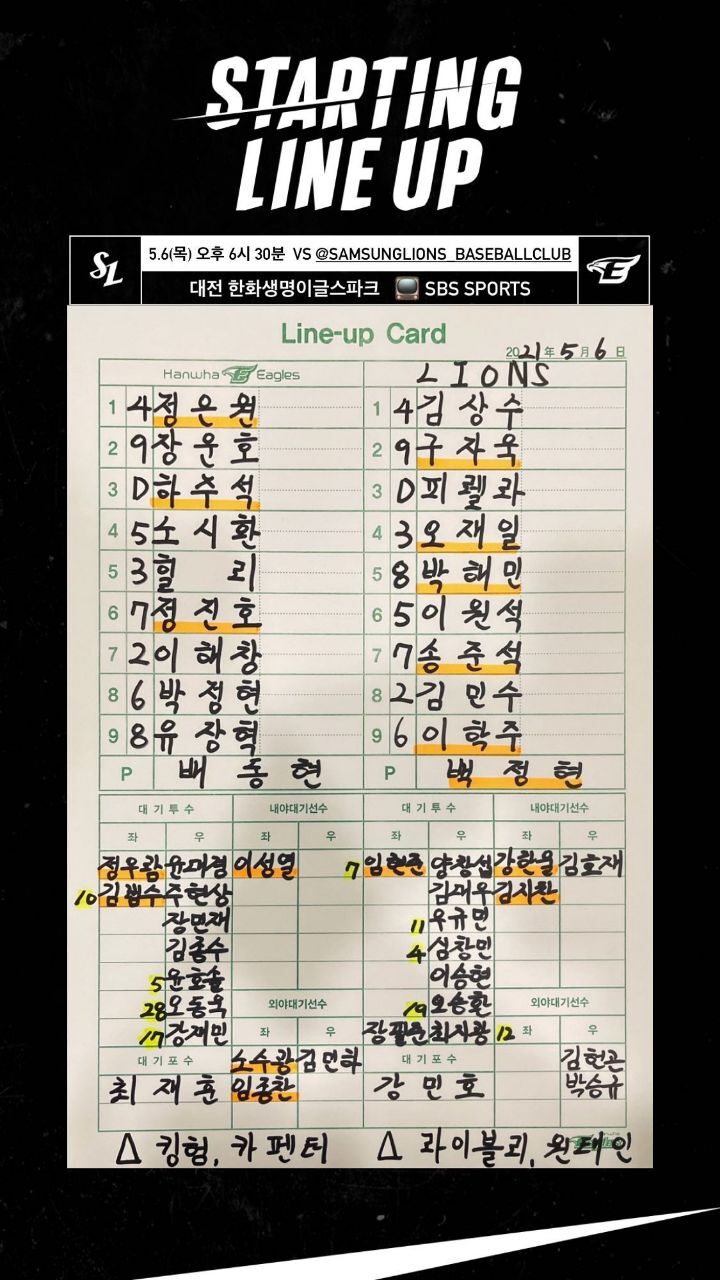 STARTING
LINE UP
SL
5.6(목) 오후 6시 30분 VS @SAMSUNGLIONS_BASEBALLCLUB
대전 한화생명이글스파크 SBS SPORTS
E
Line-up Card
2021年 5月 6日
Hanwha Eagles LIONS
1 4 정은원 1 4 김상수
2 9 장운호 2 9 구자욱
3 D 하주석 3 D 피렐라
4 5 노시환 4 3 오재일
5 3 힐리 5 8 박해민
6 7 정진호 6 5 이원석
7 2 이해창 7 7 송준석
8 6 박정현 8 2 김민수
9 8 유장혁 9 6 이학주
P 배동현 P 백정현
대기투수 내야대기선수 대기투수 내야대기선수
좌 우 좌 우 좌 우 좌 우
정우람 윤대경 이성열 7 임현준 양창섭 강한울 김호재
10 김범수 주현상 김대우 김지찬
장민재 11 우규민
김종수 4 심창민
5 윤호솔 이승현
28 오동욱 외야대기선수 19 오승환 외야대기선수
17 강재민 좌 우 장필준 최지광 12 좌 우
대기포수 노수광 김민하 대기포수 김헌곤
최재훈 임종찬 강민호 박승규
△ 킹험, 카펜터 △ 라이블리, 원태인